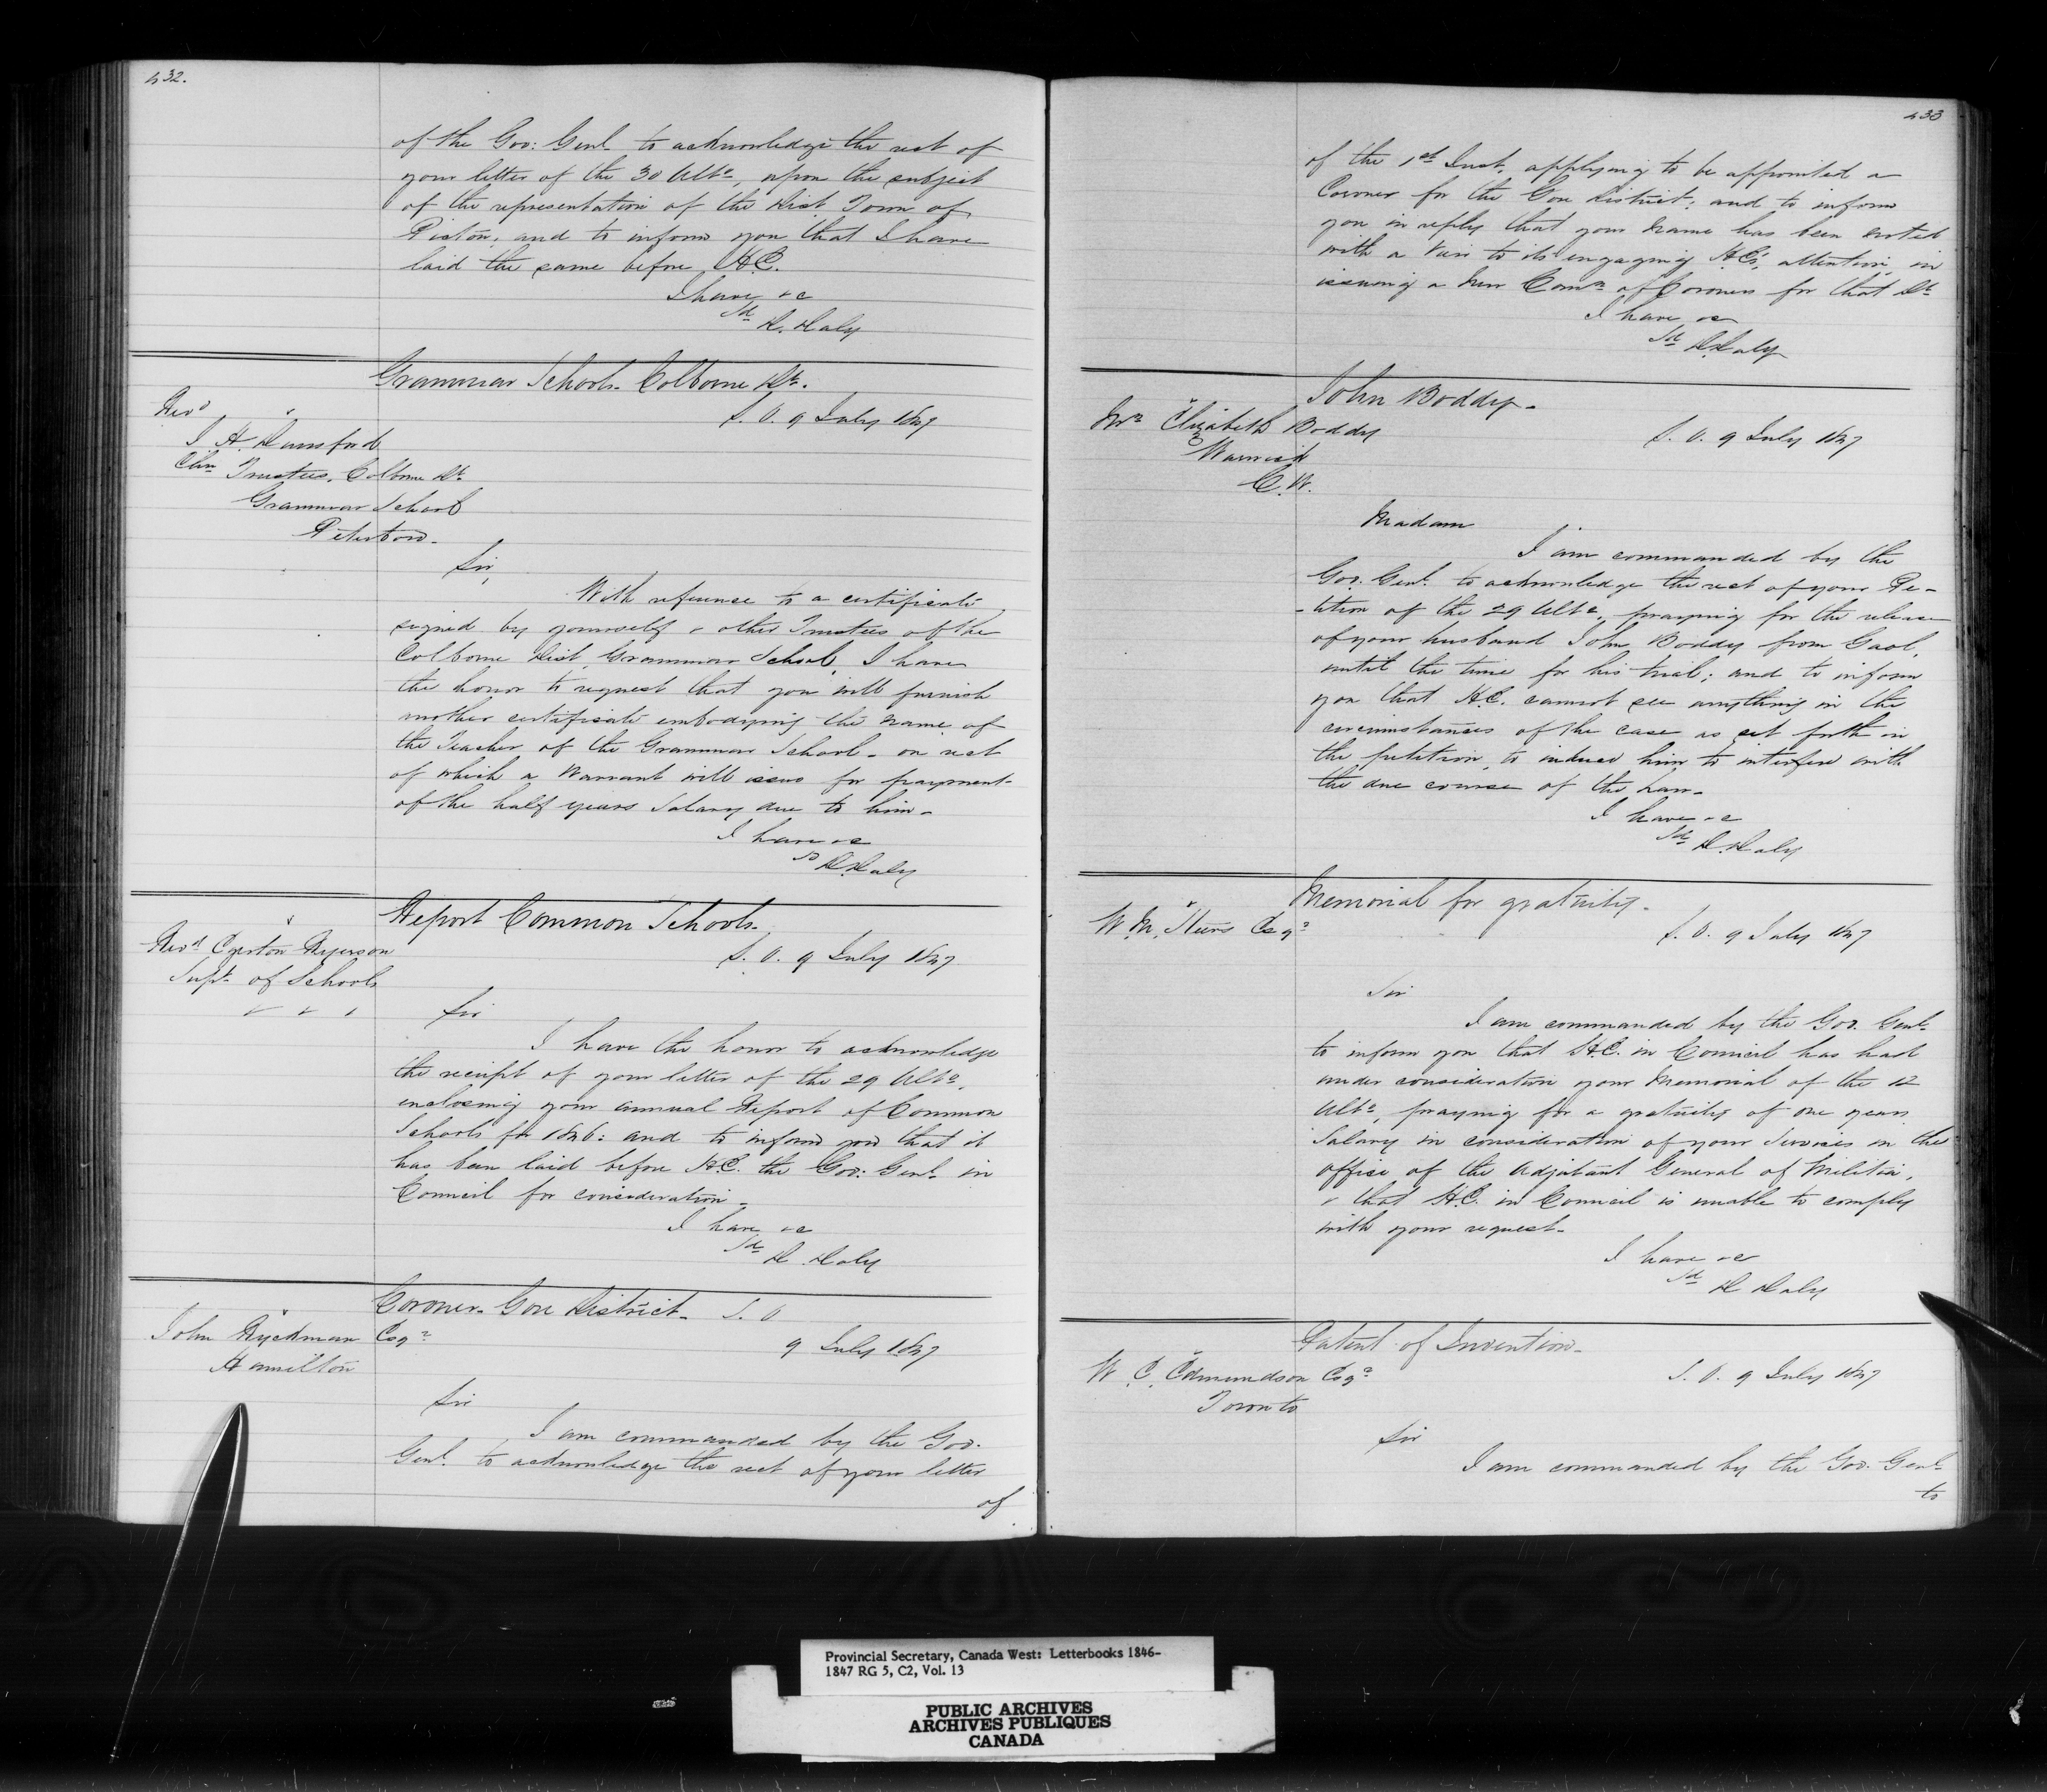 432.
of the Gov: Genl to acknowledge the rect of
your letter of the 30 Ulto, upon the subject
of the representation of the Dist Town of
Picton; and to inform you that I have
laid the same before H.E.
I have &c
Sd D. Daly
Grammar School. Colborne Dt.
Revd
S. O. 9 July 1847
Chn Trustees, Colborne Dt
Grammar School
Peterboro.
Sir,
With reference to a certificate
signed by yourself & other Trustees of the
Colborne Dist Grammar School, I have
the honor to request that you will furnish
another certificate embodying the name of
the Teacher of the Grammar School - on rect
of which a Warrant will issue for payment
of the half years Salary due to him -
I have &c
Sd D. Daly
Report Common Schools.
Revd Egerton Ryerson
Supt of Schools
S. O. 9 July 1847
Sir
I have the honor to acknowledge
the receipt of your letter of the 29 Ulto,
enclosing your annual Report of Common
Schools for 1846: and to inform you that it
has been laid before H.E. the Gov: Genl in
Council for consideration -
I have &c
Sd D. Daly
Coroner - Gore District - S. O
John Ryckman Esqr
9 July 1847
Hamilton
Sir
I am commanded by the Gov.
Genl. to acknowledge the rect of your letter
of
433
of the 1st Inst. applying to be appointed a
Coroner for the Gore District; and to inform
you in reply that your name has been noted
with a view to its engaging H.E's. attention in
issuing a new Comn of Coroners for that Dt
I have &c
Sd D. Daly
John Boddy -
Mrs Elizabeth Boddy
S. O. 9 July 1847
Warwick
C. W.
Madam
I am commanded by the
Gov. Genl. to acknowledge the rect of your Pe-
-tition of the 29 Ulto, praying for the release
of your husband John Boddy from Gaol,
until the time for his trial; and to inform
you that H.E. cannot see anything in the
circumstances of the case as set forth in
the petition, to induce him to interfere with
the due course of the Law -
I have &c
Sd D. Daly
Memorial for gratuity -
S. O. 9 July 1847
Sir
I am commanded by the Gov. Genl.
to inform you that H.E. in Council has had
under consideration your Memorial of the 12
Ulto, praying for a gratuity of one years
Salary in consideration of your Services in the
Office of the Adjutant General of Militia,
& that H.E. in Council is unable to comply
with your request -
I have &c
Sd D Daly
Patent of Invention -
W. C. Edmundson Esqr
S. O. 9 July 1847
Toronto
Sir
I am commanded by the Gov. Genl.
to
Provincial Secretary, Canada West: Letterbooks 1846-
1847 RG 5, C2, Vol. 13
PUBLIC ARCHIVES
ARCHIVES PUBLIQUES
CANADA